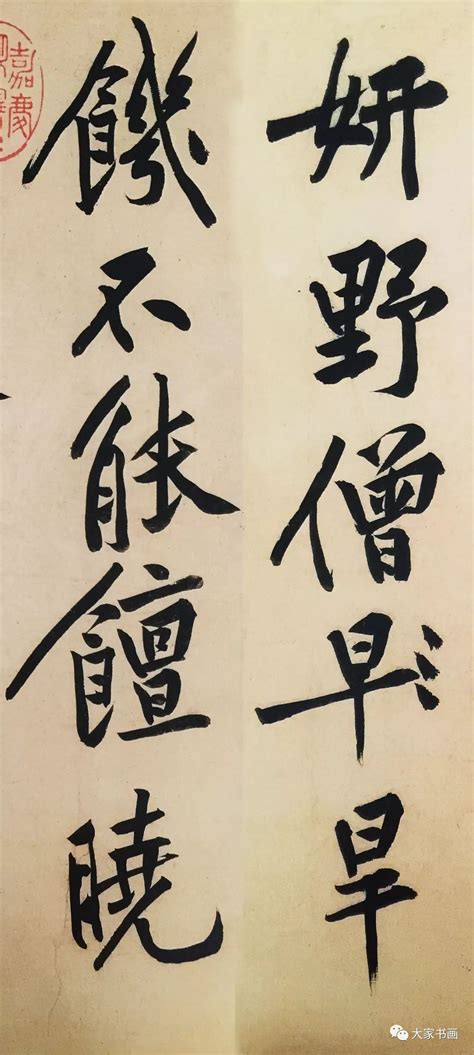 妍野僧早旱
饑不能饘曉
嘉慶
大家书画